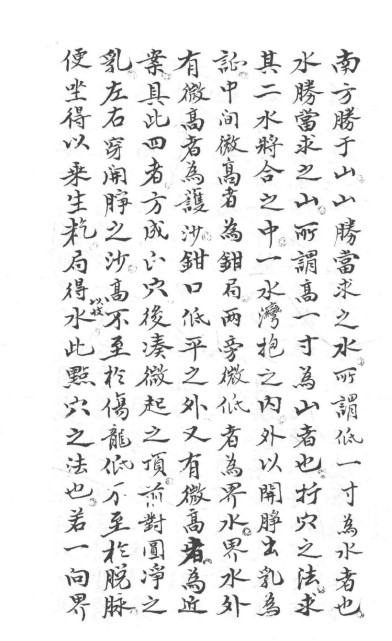 南方勝于山山勝當求之水所謂低一寸為水者也
水勝當求之山所謂高一寸為山者也扦穴之法求
其二水將合之中一水灣抱之內外以開睜出乳為
証中间微髙者為鉗局两旁微低者為界水界水外
有微髙者為護沙鉗口低平之外又有微髙者為近
案具此四者方成公穴後湊微起之頂前對圓淨之
乳左右穿開睜之沙髙不至於傷龍低不至於脱脉
便坐得以乘生乾局得水以城此㸃穴之法也若一向界